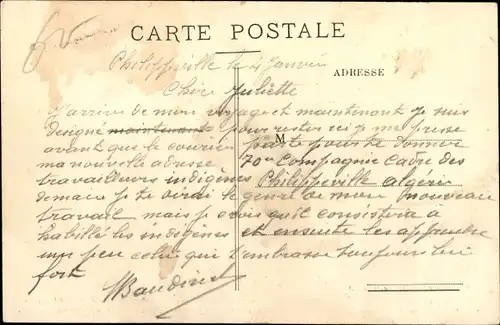 CARTE POSTALE
Philippeville le 4 Janvier
ADRESSE
Chère Juliette
J'arrive de mon voyage et maintenant je suis
désigné maintenant pour rester ici je me presse
M
avant que le courrier parte pour te donner
ma nouvelle adresse 70e Compagnie Cadre des
travailleurs indigènes Philippeville Algérie
demain je te dirai le genre de mon nouveau
travail mais je crois qu'il consistera à
habillé les indigènes et ensuite les apprendre
un peu celui qui t'embrasse toujours bien
fort
Baudin